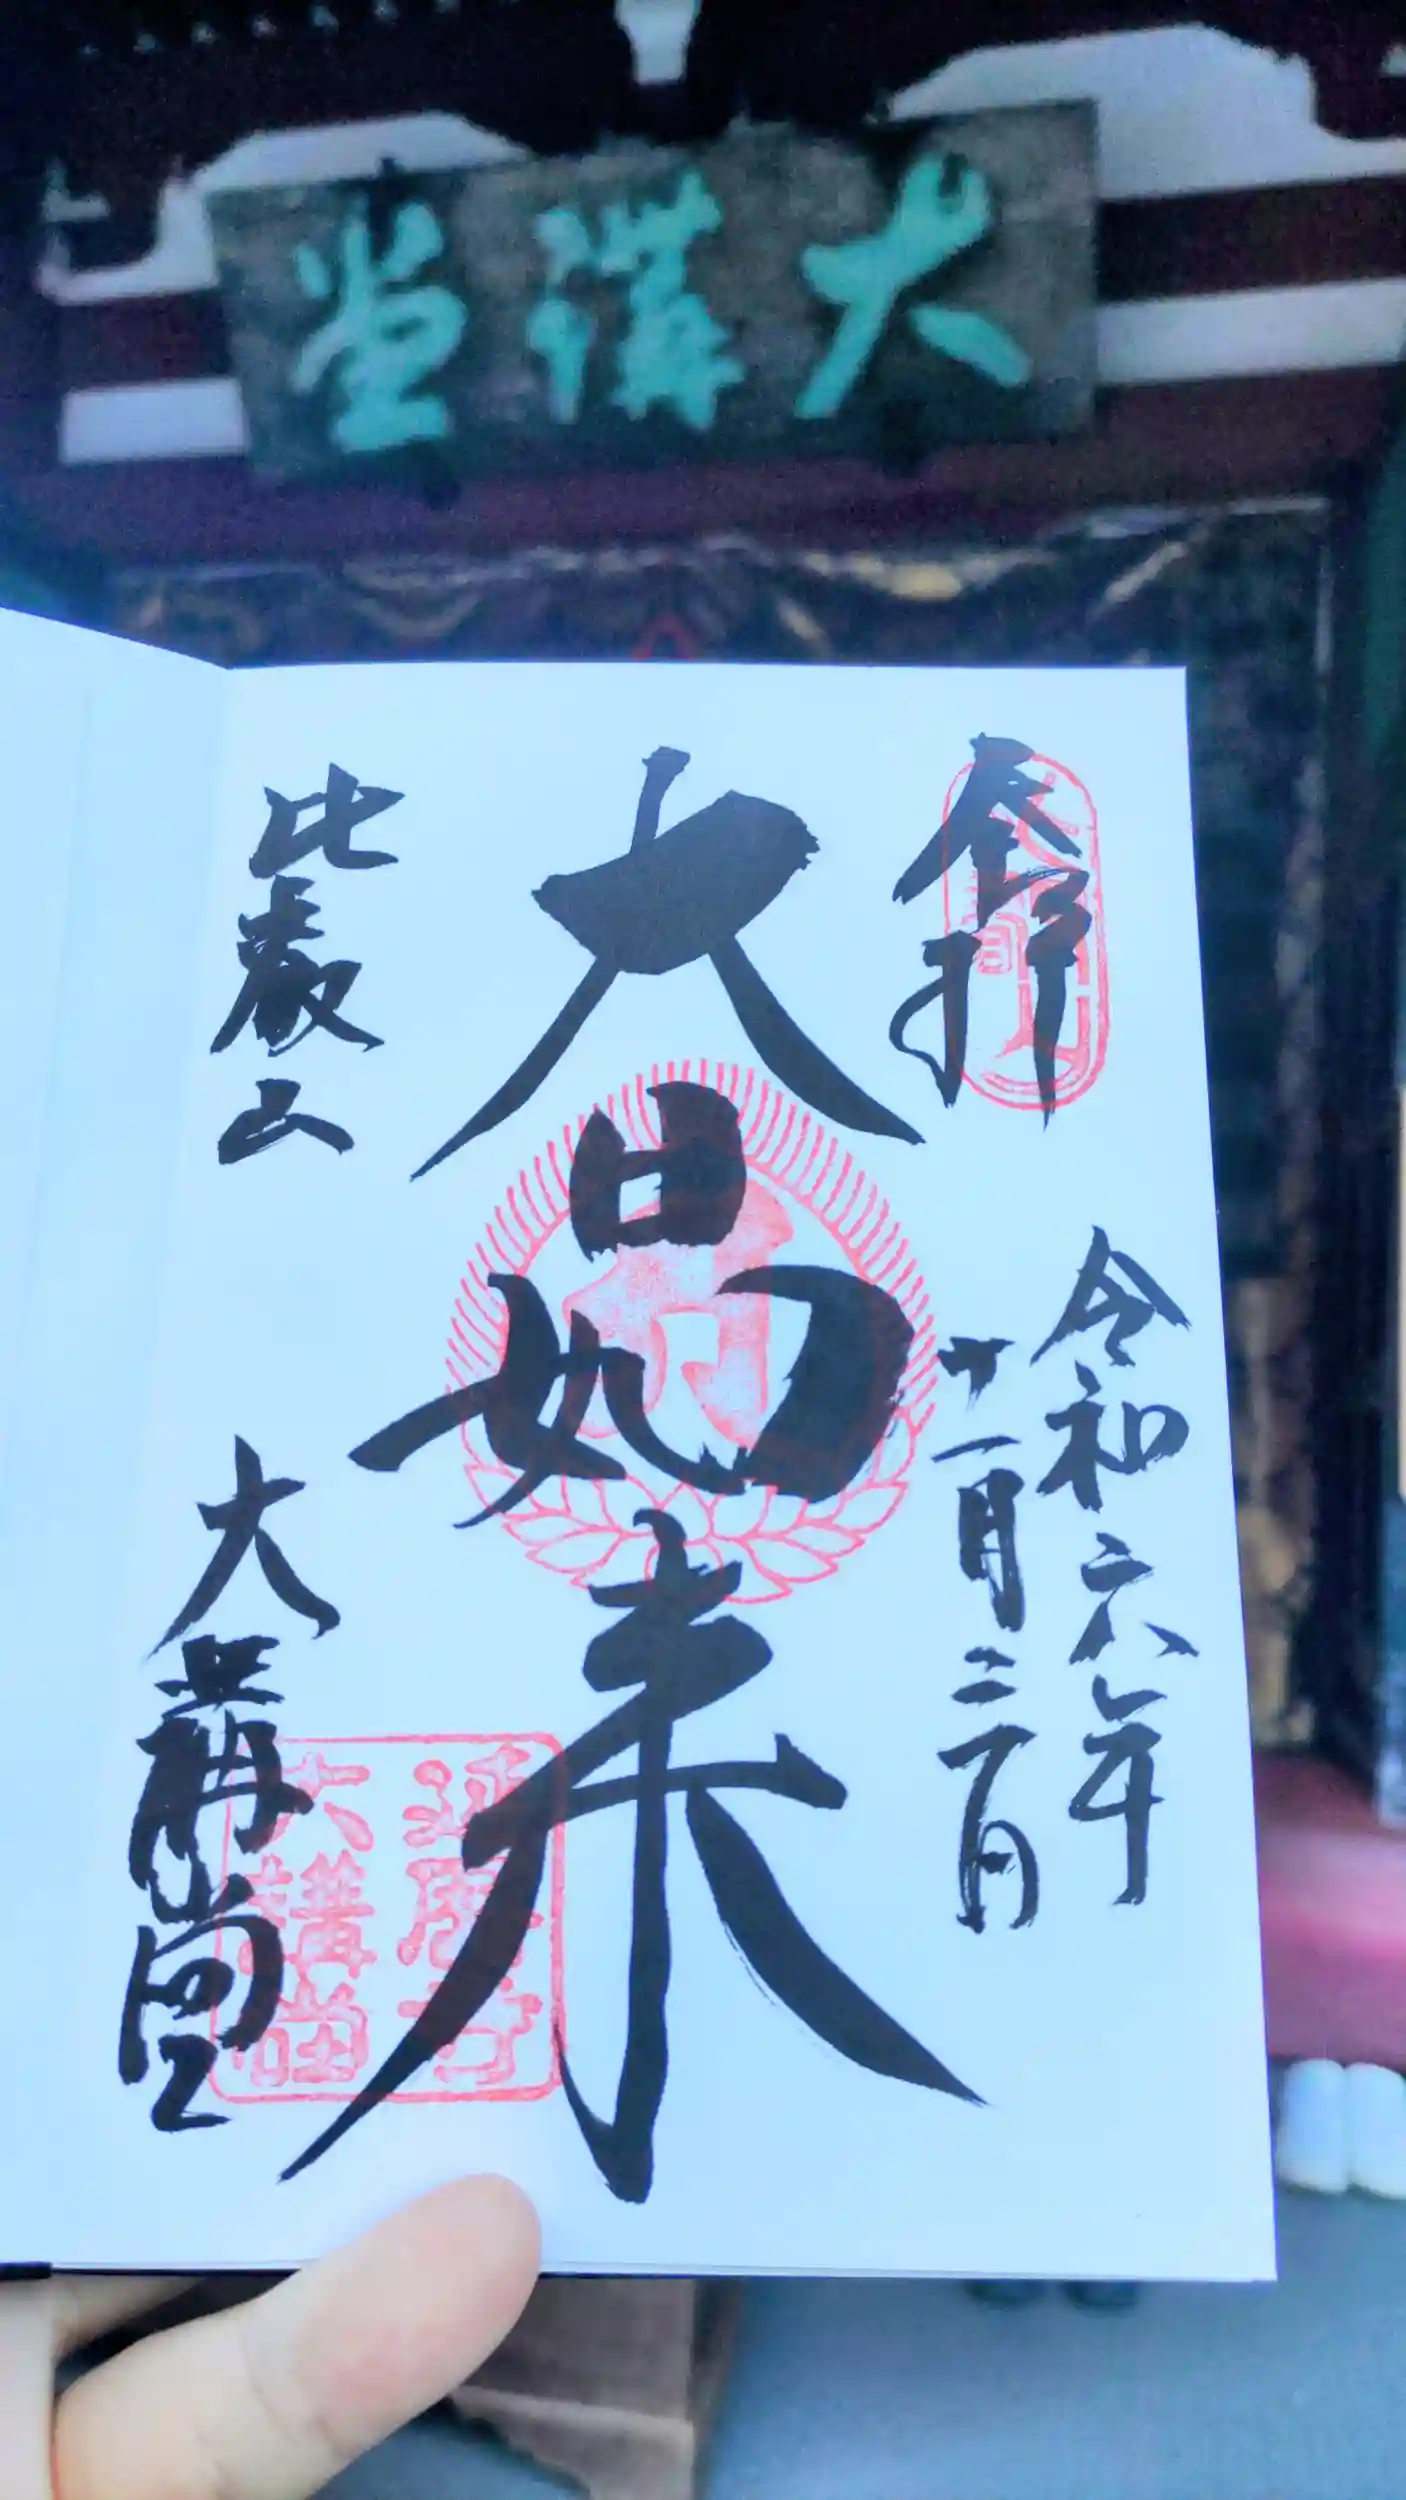 大講堂
奉拝
令和六年
十一月三日
大日如来
比叡山
大講堂
延暦寺
大講堂